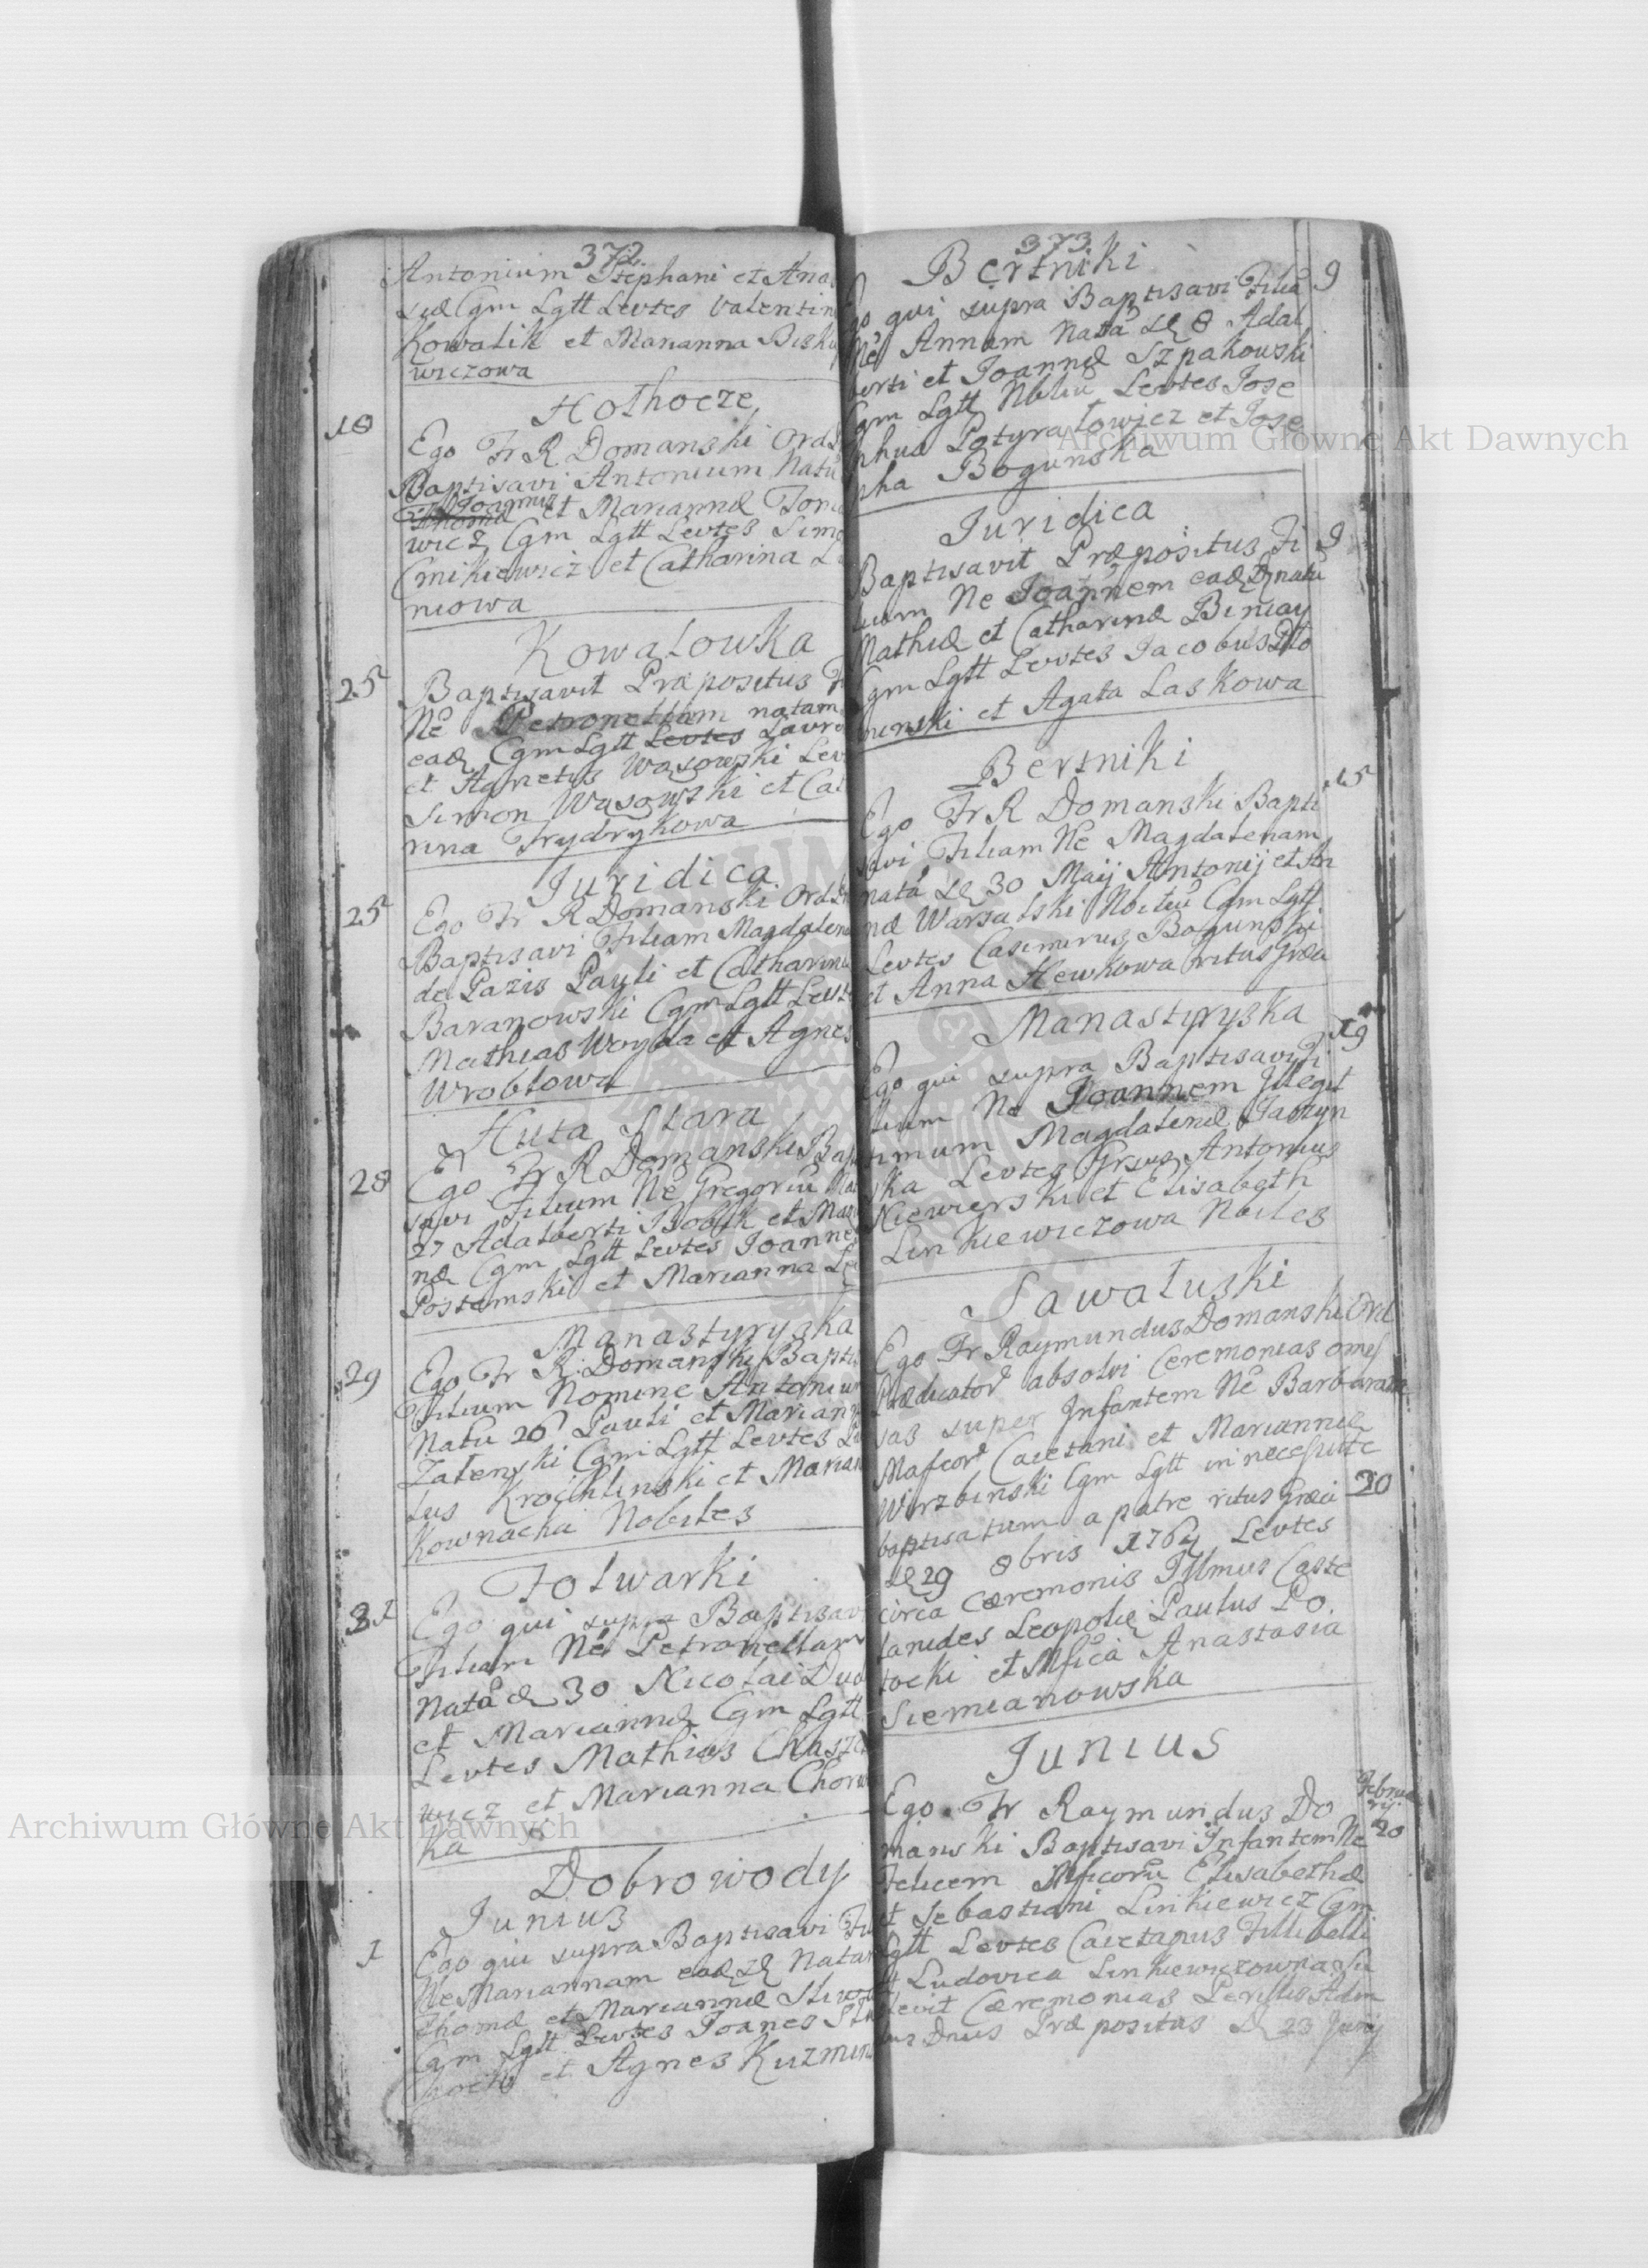 372
Antonium Stephani et Anas
suæ Cgm Lgtt Levtes Valentin
Kowalik et Marianna Bisku
wiczowa
Hothocze
18
Ego Fr R Domanski Ord
Baptisavi Antonium Natu
Joannis et Mariannæ Tom
wicz Cgm Lgtt Levtes Simo
Cmikiewicz et Catharina
niowa
Kowalowka
25
Baptisavit Præpositus
Ne Petronellam natam
ead Cgm Lgtt Levtes Laure
et Agnetis Wąsowski Lev
Simon Wąsowski et Cat
rina Frydrykowa
Juridica
25
Ego Fr R Domanski Ord
Baptisavi Filiam Magdalena
de Pazis Pauli et Catharina
Baranowski Cgm Lgtt Levt
Mathias Woyda et Agnes
Wroblowa
Huta Stara
28
Ego Fr R Domanski Bap
savi Filium Ne Gregoriu Na
27 Adalberti Bobik et Mari
næ Cgm Lgtt Levtes Joannes
Postamski et Marianna
Manastyryska
29
Ego Fr R Domanski Bapti
Filium Nomine Antonium
Natu 26 Pauli et Mariann
Zalenski Cgm Lgtt Levtes
lus Krochlinski et Marian
Kownacka Nobiles
Folwarki
31
Ego qui supra Baptisav
Filiam Ne Petronellam
Nata d 30 Nicolai Dud
et Mariannæ Cgm Lgtt
Levtes Mathias Chasze
wicz et Marianna Chorw
ka
Dobrowody
Junius
1
Ego qui supra Baptisavi Fil
Ne Mariannam ead d Natam
Thomæ et Mariannæ
Cgm Lgtt Levtes Joanes
et Agnes Kuzmin
373
Bertniki
9
Ego qui supra Baptisavi Filiã
Ne Annam Natã d 8 Adal
berti et Joannæ Szpakowski
Cgm Lgtt Nbliu Levtes Jose
phus Potyralowicz et Jose
pha Bogunska
Juridica
9
Baptisavit Præpositus Fi
lium Ne Joannem ead d natu
Mathiæ et Catharinæ Biniay
Cgm Lgtt Levtes Jacobus
minski et Agata Laskowa
Bertniki
15
Ego Fr R Domanski Bapti
savi Filiam Ne Magdalenam
natã d 30 Maij Antonij et An
næ Warsalski Nbiliu Cgm Lgtt
Levtes Casimirus Bogunski
et Anna Hewkowa ritus Græci
Manastyryska
19
Ego qui supra Baptisavi Fi
lium Ne Joannem Jllegit
timum Magdalenæ Jaszyn
ska Levtes Grsus Antonius
Niewierski et Elisabeth
Linkiewiczowa Nbiles
Sawaluski
Ego Fr Raymundus Domanski Ord
Prædicator absolvi Ceremonias omes
sas super Infantem Ne Barbaram
Mafcor Caietani et Mariannæ
Wirzbinski Cgm Lgtt in necesitate
20
baptisatum a patre ritus Græci
d 29 8bris 1764 Levtes
circa Cæremonis Illmus Caste
lanides Leopoliæ Paulus Po
tocki et Mfica Anastasia
Siemianowska
Junius
Februa
rij
20
Ego Fr Raymundus Do
manski Baptisavi Infantem Ne
Felicem Mficoru Elisabethæ
et Sebastiani Linkiewicz Cgm
Lgtt Levtes Caietanus
et Ludovica Linkiewiczowna
levit Cæremonias Perillis Adm
Dnus Præpositus d 23 Junij
Archiwum Główne Akt Dawnych
Archiwum Główne Akt Dawnych